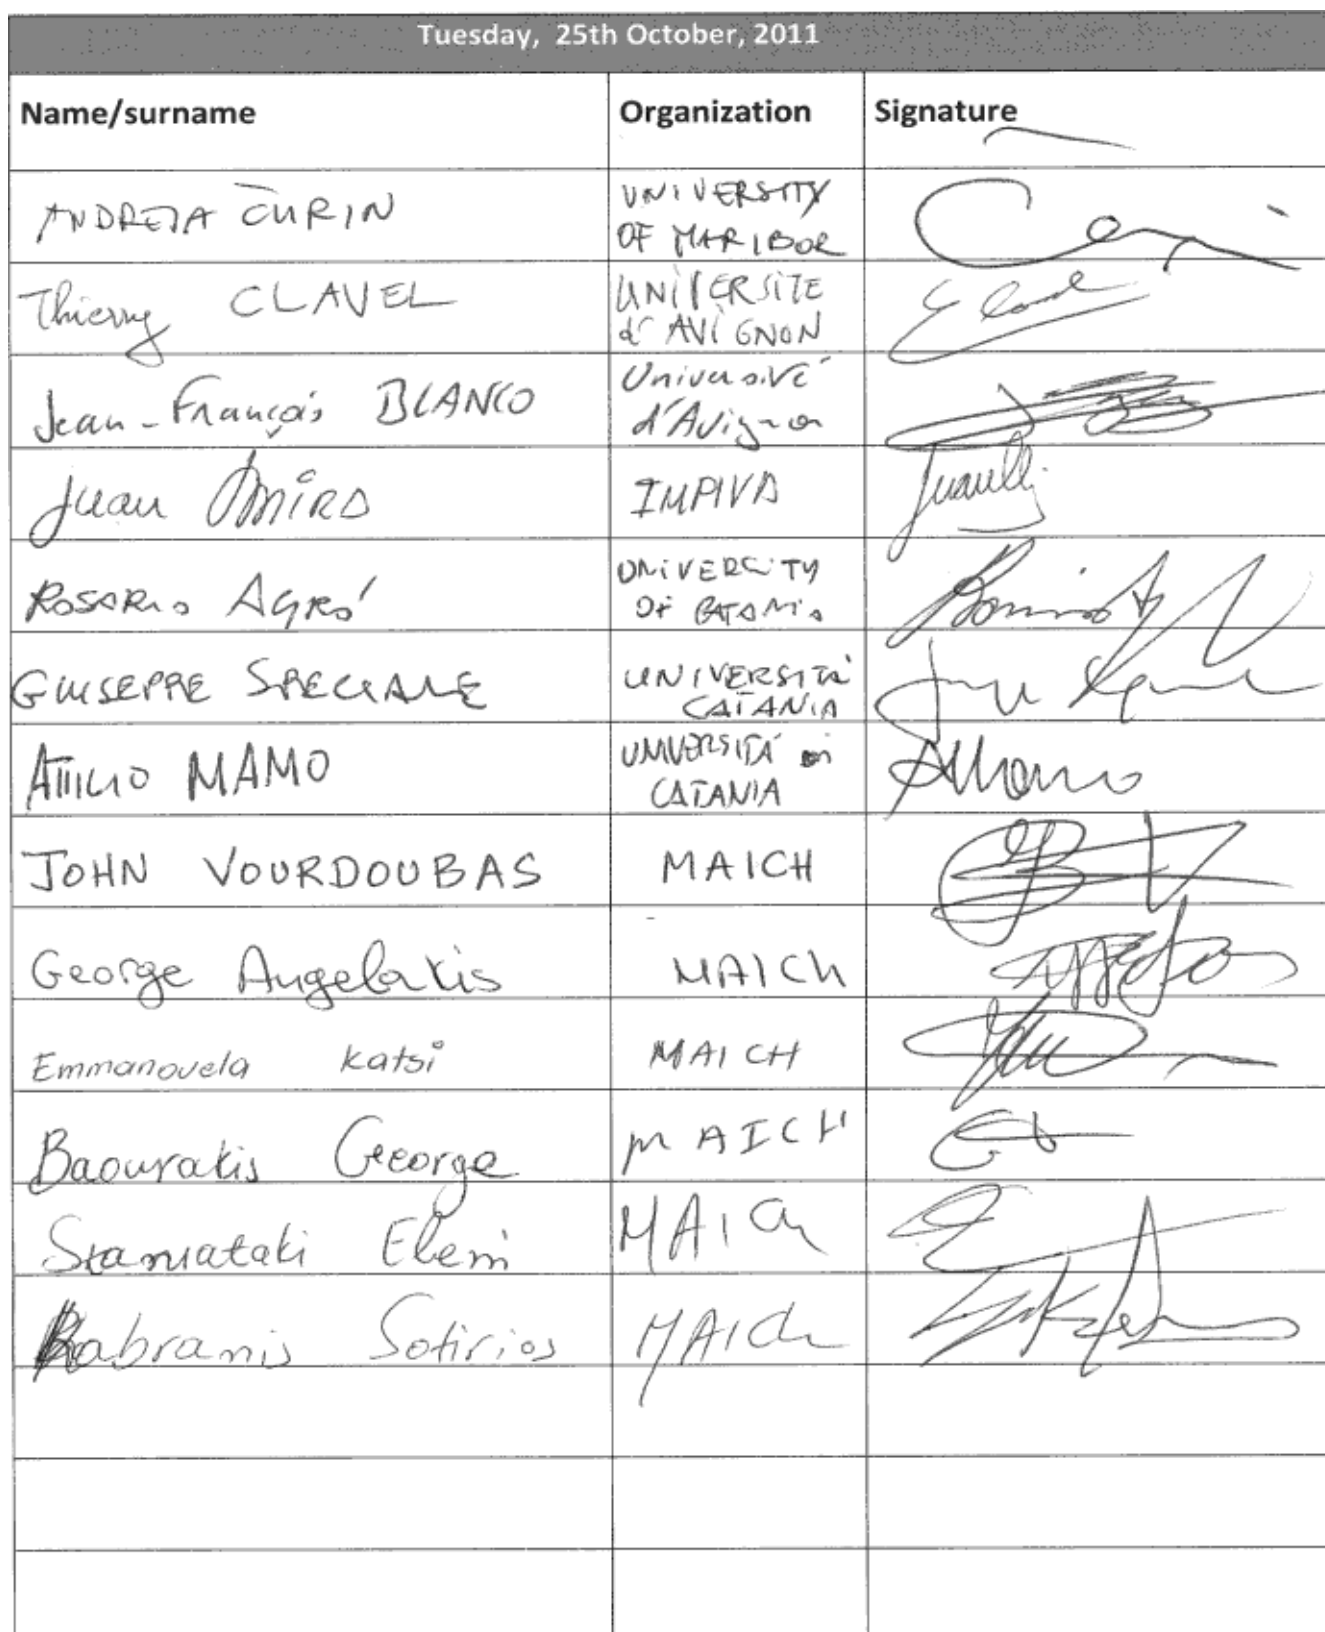 Tuesday, 25th October, 2011
Name/surname Organization Signature
ANDREJA ČURIN UNIVERSITY
OF MARIBOR
Thierry CLAVEL UNIVERSITE
d'AVIGNON
Jean-François BLANCO Université
d'Avignon
Juan Miró IMPIVA
ROSARIO AGRÓ UNIVERCITY
OF CATANIA
GIUSEPPE SPECIALE UNIVERSITÀ
CATANIA
ATTILIO MAMO UNIVERSITÀ DI
CATANIA
JOHN VOURDOUBAS MAICH
George Angelakis MAICh
Emmanouela Katsi MAICH
Baourakis George MAICH
Stamataki Eleni MAICh
Kabranis Sotirios MAICh